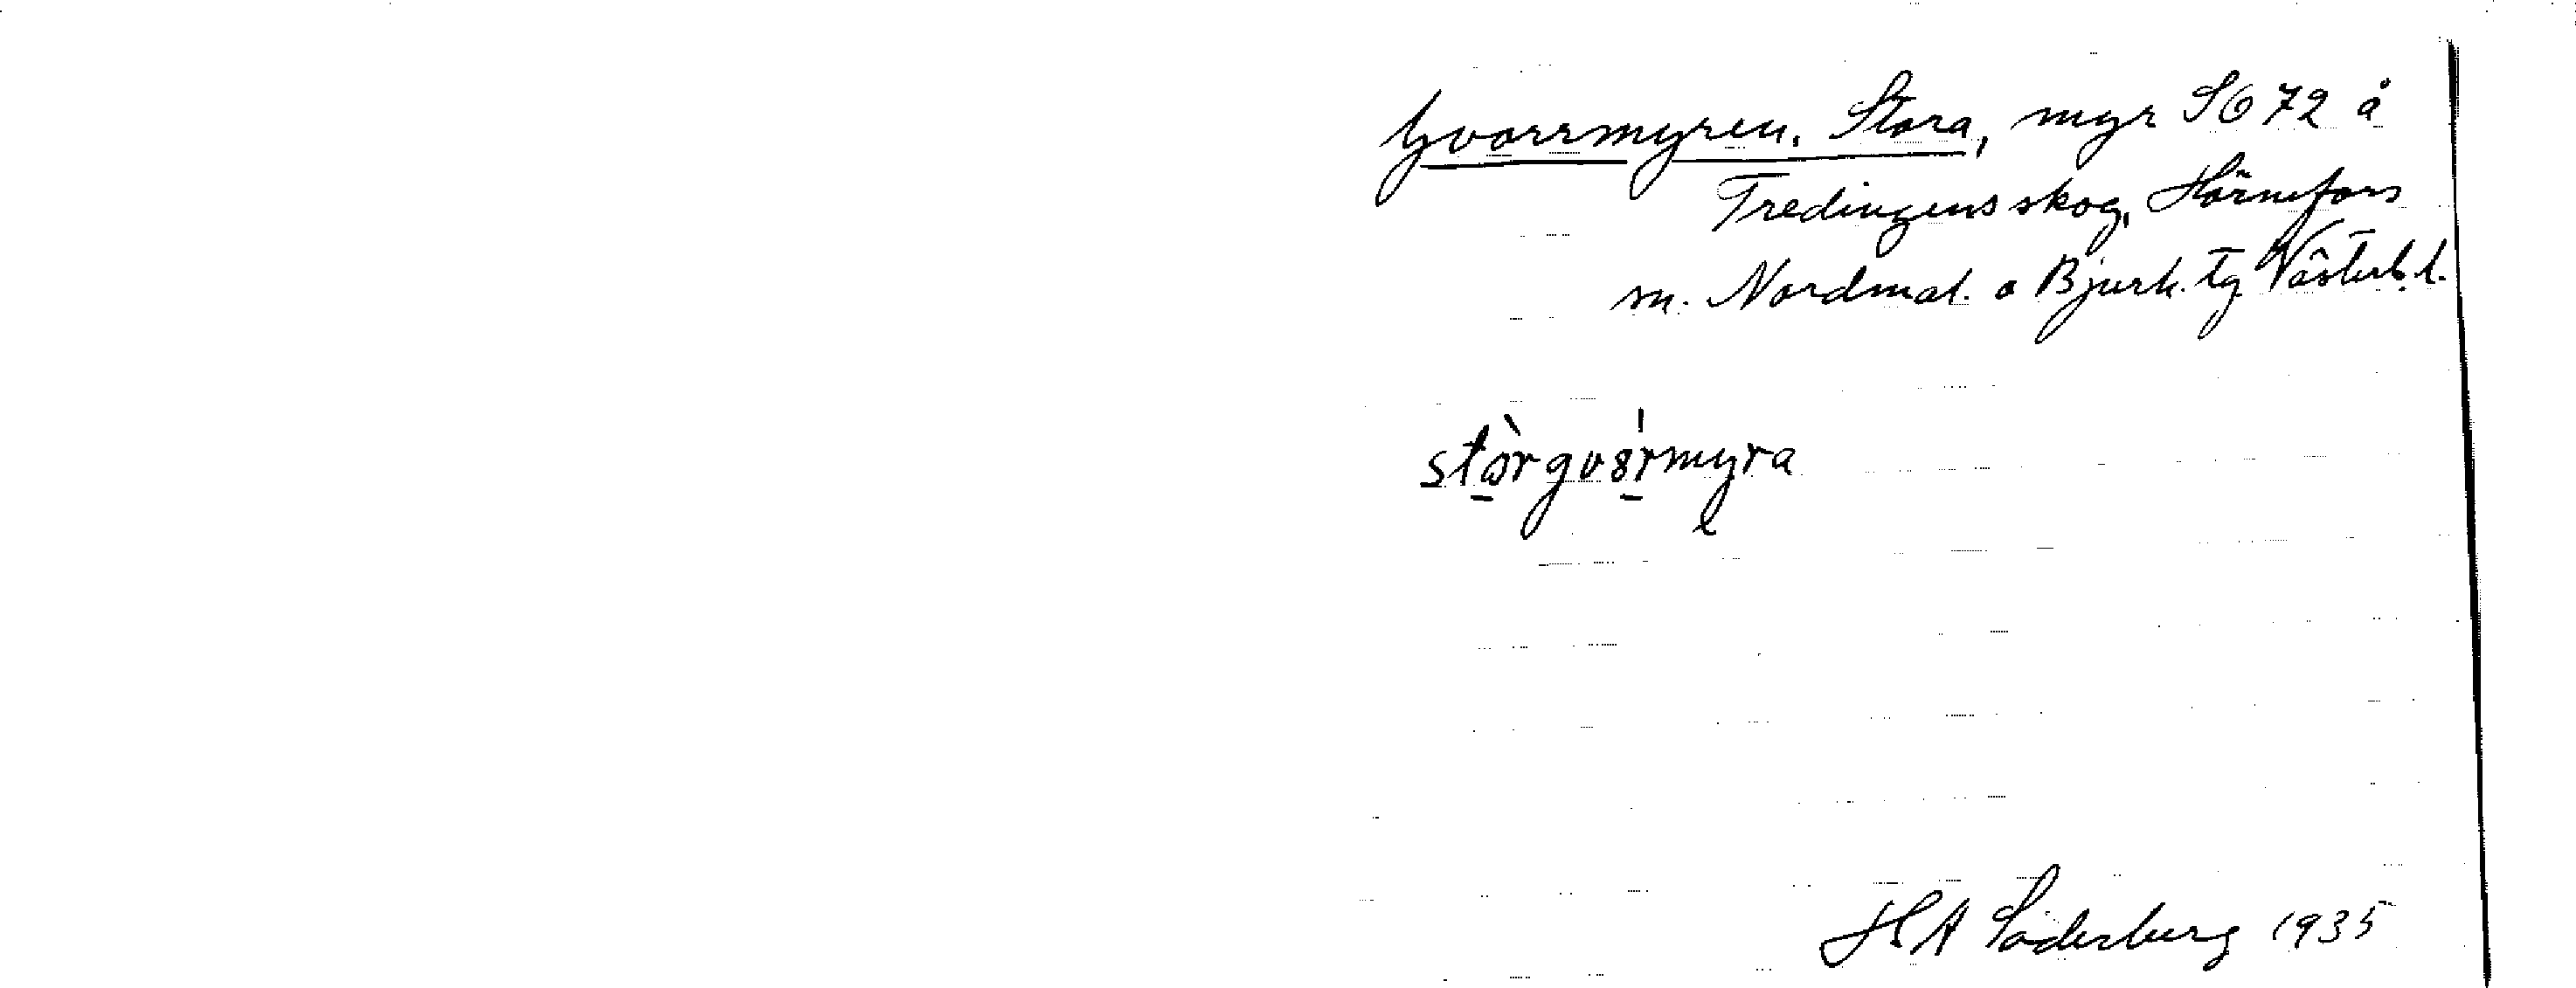 Gvorrmyren, Stora, myr SO 72 å
Tredingens skog, Hörnefors
sn. Nordmal. o Bjurh. tg Västerb. l.
stòrgvórmyra
H A Söderberg 1935